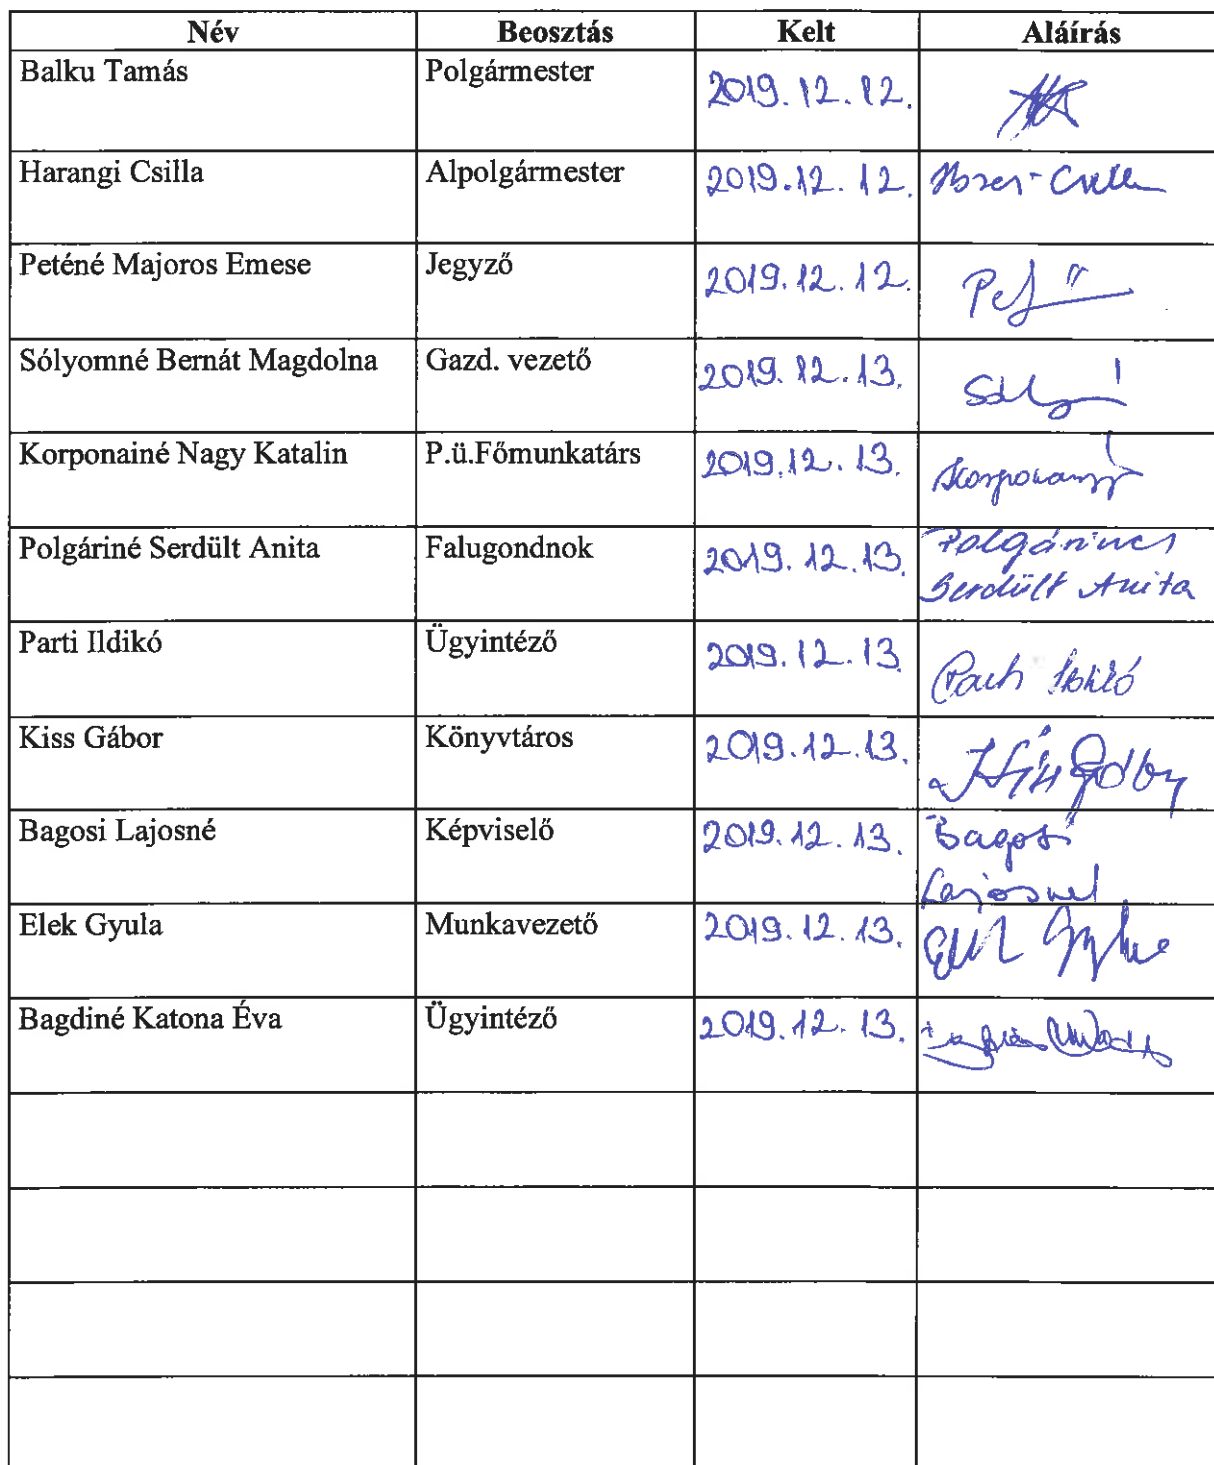 Név Beosztás Kelt Aláírás
Balku Tamás Polgármester 2019. 12. 12.
Harangi Csilla Alpolgármester 2019. 12. 12.
Peténé Majoros Emese Jegyző 2019. 12. 12.
Sólyomné Bernát Magdolna Gazd. vezető 2019. 12. 13.
Korponainé Nagy Katalin P.ü.Főmunkatárs 2019. 12. 13.
Polgáriné Serdült Anita Falugondnok 2019. 12. 13. Polgáriné
Serdült Anita
Parti Ildikó Ügyintéző 2019. 12. 13 Parti Ildikó
Kiss Gábor Könyvtáros 2019. 12. 13. Kiss Gábor
Bagosi Lajosné Képviselő 2019. 12. 13. Bagosi
Lajosné
Elek Gyula Munkavezető 2019. 12. 13. Elek Gyula
Bagdiné Katona Éva Ügyintéző 2019. 12. 13.